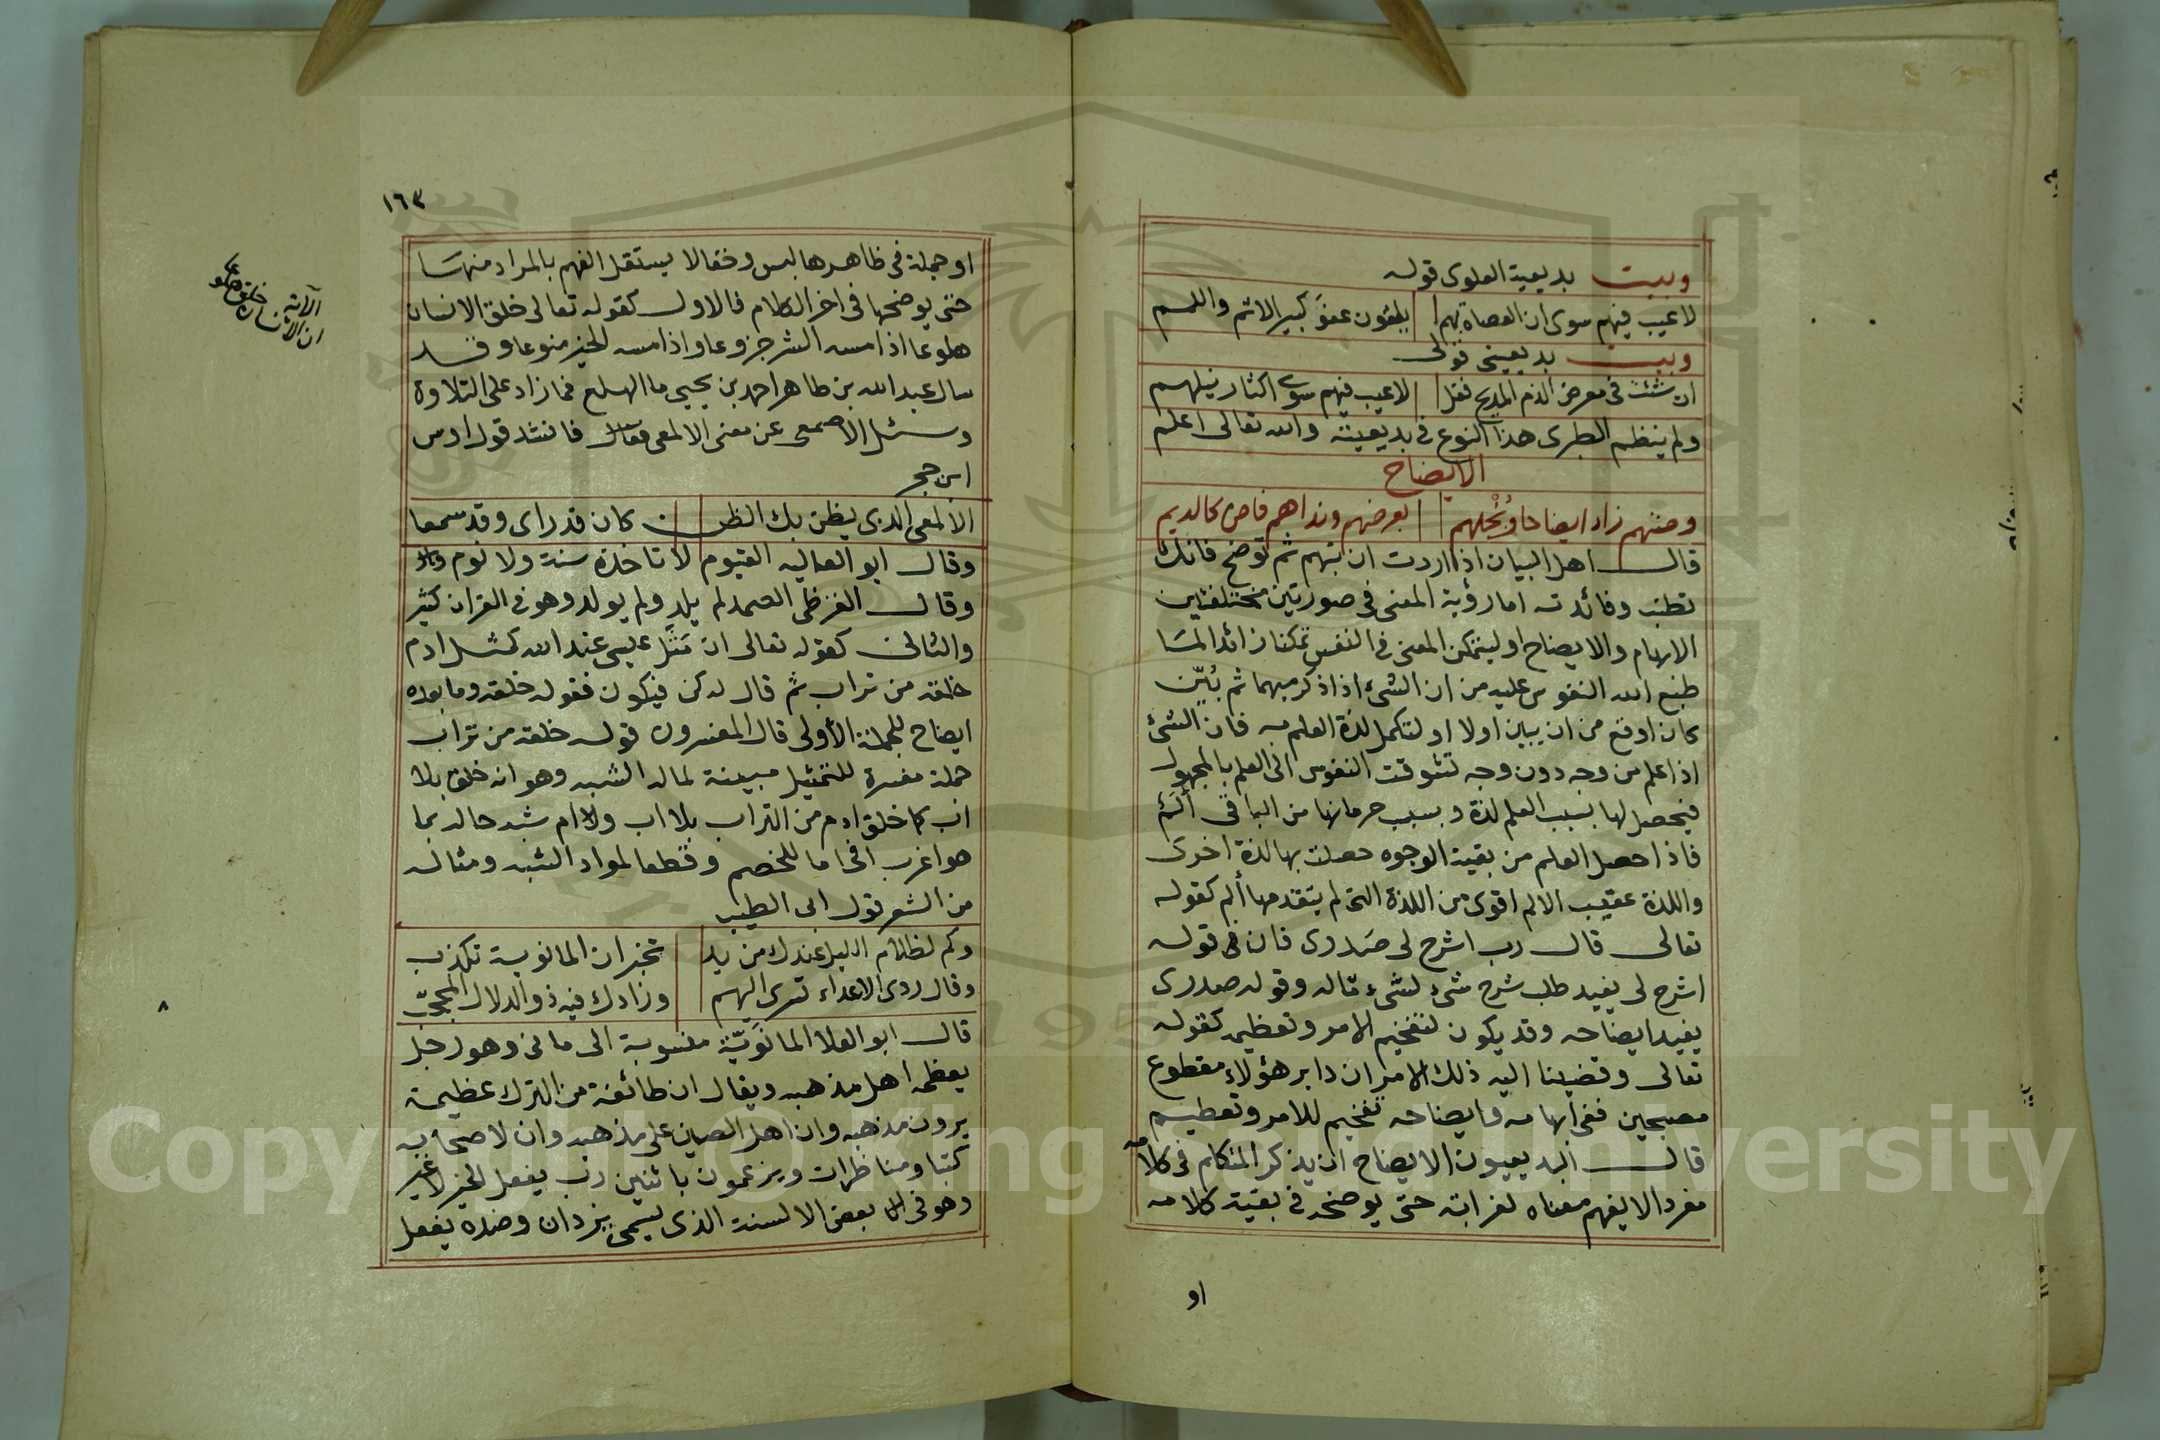 وبيت بديعية العلوى قوله
لاعيب فيهم سوى ان العصاة بهم يلقون عفو كبير الاثم واللمم
وبيت بديعيتى قولى
ان شئت فى معرض الذم المديح فقل لاعيب فيهم سوى اكثار نيلهم
ولم ينظم الطبرى هذا النوع فى بديعيته والله تعالى اعلم
الايضاح
ومنهم زاد ايضاحا وبُخلهم بعرضهم ونداهم فاض كالديم
قال اهل البيان اذا اردت ان تبهم ثم توضح فانك
تطنب وفائدته اما رؤية المعنى فى صورتين مختلفتين
الابهام والايضاح او ليتمكن المعنى فى النفس تمكنا زائدا لما
طبع الله النفوس عليه من ان الشئ اذا ذكر مبهما ثم بُيّن
كان اوقع من ان يبين اولا او لتكمل لذة العلم به فان الشئ
اذا علم من وجه دون وجه تشوقت النفوس الى العلم بالمجهول
فيحصل لها بسبب العلم لذة وبسبب حرمانها من الباقى ألم
فاذا حصل العلم من بقية الوجوه حصلت بها لذة اخرى
واللذة عقيب الالم اقوى من اللذة التى لم يتقدمها ألم كقوله
تعالى قال رب اشرح لى صدرى فان فى قوله
اشرح لى يفيد طلب شرح شئ لشئ ما له وقوله صدرى
يفيد ايضاحه وقد يكون لتفخيم الامر وتعظيمه كقوله
تعالى وقضينا اليه ذلك الامر ان دابر هؤلاء مقطوع
مصبحين ففى ابهامه وايضاحه تفخيم للامر وتعظيم
قال البديعيون الايضاح ان يذكر المتكلم فى كلامه
مفردا لا يفهم معناه لغرابته حتى يوضحه فى بقية كلامه
او
١٦٣
او جملة فى ظاهرها لبس وخفا لا يستقل الفهم بالمراد منها
حتى يوضحها فى اخر الكلام فالاول كقوله تعالى خلق الانسان
هلوعا اذا مسه الشر جزوعا واذا مسه الخير منوعا وقد
سال عبد الله بن طاهر احمد بن يحيى ما الهلع فما زاد على التلاوة
وسئل الاصمعى عن معنى الالمعى فقال فانشد قول اوس
ابن حجر
الالمعى الذى يظن بك الظن كان قد راى وقد سمعا
وقال ابو العاليه القيوم لا تاخذه سنة ولا نوم
وقال القرظى الصمد لم يلد ولم يولد وهو فى القران كثير
والثانى كقوله تعالى ان مَثَل عيسى عند الله كمثل ادم
خلقه من تراب ثم قال له كن فيكون فقوله خلقه وما بعده
ايضاح للجملة الأولى قال المفسرون قوله خلقه من تراب
جملة مفسرة للتمثيل مبينة لما له الشبه وهو انه خلق بلا
اب كما خلق ادم من التراب بلا اب ولا ام شبه حاله بما
هو اغرب افحاما للخصم وقطعا لمواد الشبه ومثاله
من الشعر قول ابى الطيب
وكم لظلام الليل عندك من يد تخبر ان المانوية تكذب
وقاك ردى الاعداء تسرى اليهم وزارك فيه ذو الدلال المحجب
قال ابو العلا المانَوِيّة منسوبة الى مانى وهو رجل
يعظمه اهل مذهبه ويقال ان طائفة من الترك عظيمة
يرون مذهبه وان اهل الصين على مذهبه وان لاصحابه
كتبا ومناظرات ويزعمون باثنين رب يفعل الخير لا غير
وهو فى بعض الالسنة الذى يسمى يزدان وضده يفعل
الآية
ان الانسان خلق هلوعا
٨
Copyright © King Saud University
1957